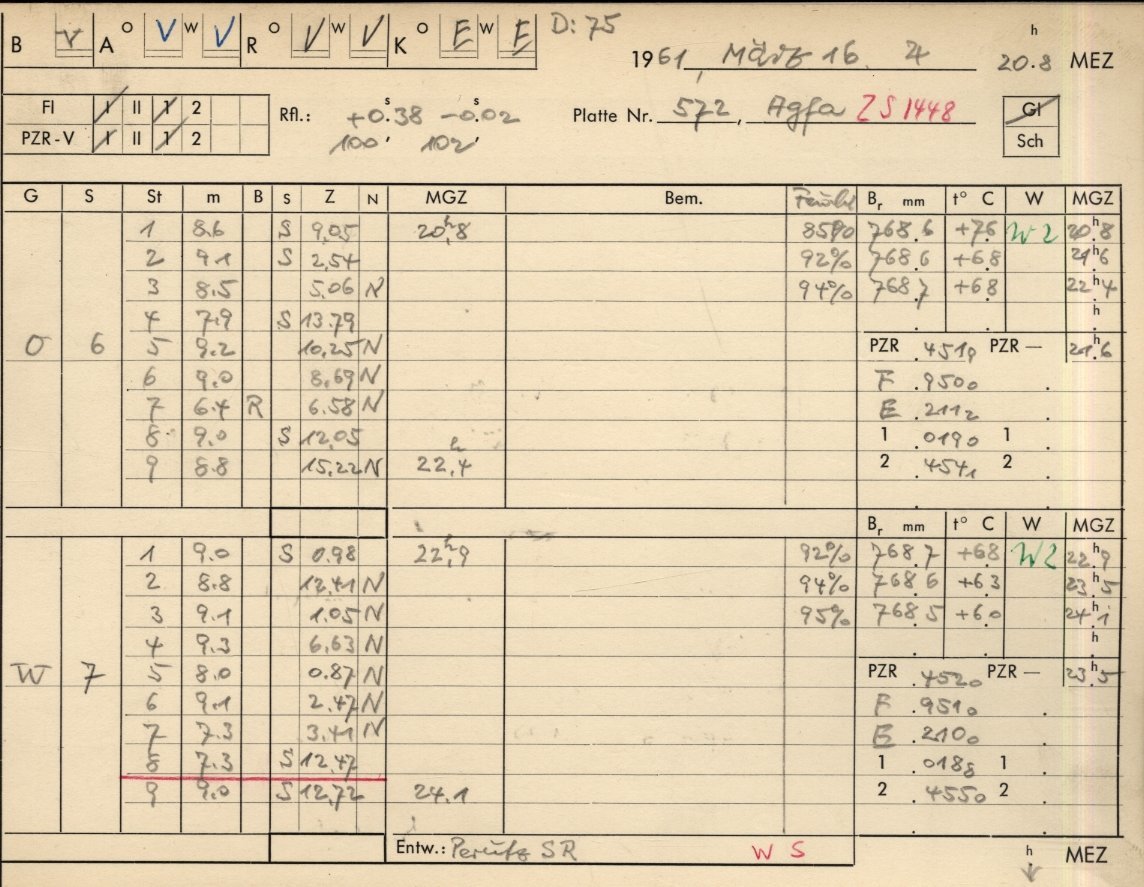 B V A O V W V R O V W V K O E W E D: 75
1961, März 16. 4 h 20.8 MEZ
FI I II 1 2 Rfl.: +0.s38 -0.s02 Platte Nr. 572, Agfa ZS1448 GI
PZR-V I II 1 2 100' 102' Sch
G S St m B s Z N MGZ Bem. Br mm t° C W MGZ
1 8.6 S 9,05 20h,8 85% 768.6 +7.6 W2 20h8
2 9.1 S 2,54 92% 768.6 +6.8 21h6
3 8.5 5,06 N 94% 768.7 +6.8 22h4
4 7.9 S 13.79 h
O 6 5 9.2 10,25 N PZR .4519 PZR — 21h6
6 9.0 8,69 N F .9500
7 6.4 R 6.58 N E .2112
8 9.0 S 12,05 1 .0190 1
9 8.8 15,22 N 22h,4 2 .4541 2
Br mm t° C W MGZ
1 9.0 S 0.98 22h,9 92% 768.7 +6.8 W2 22h9
2 8.8 12,41 N 94% 768.6 +6.3 23h5
3 9.1 1.05 N 95% 768.5 +6.0 24h1
4 9.3 6,63 N h
W 7 5 8.0 0.87 N PZR .4520 PZR — 23h5
6 9.1 2.47 N F .9510
7 7.3 3.41 N E .2100
8 7.3 S 12,47 1 .0188 1
9 9.0 S 12,72 24.1 2 .4550 2
Entw.: Perutz SR W S h MEZ